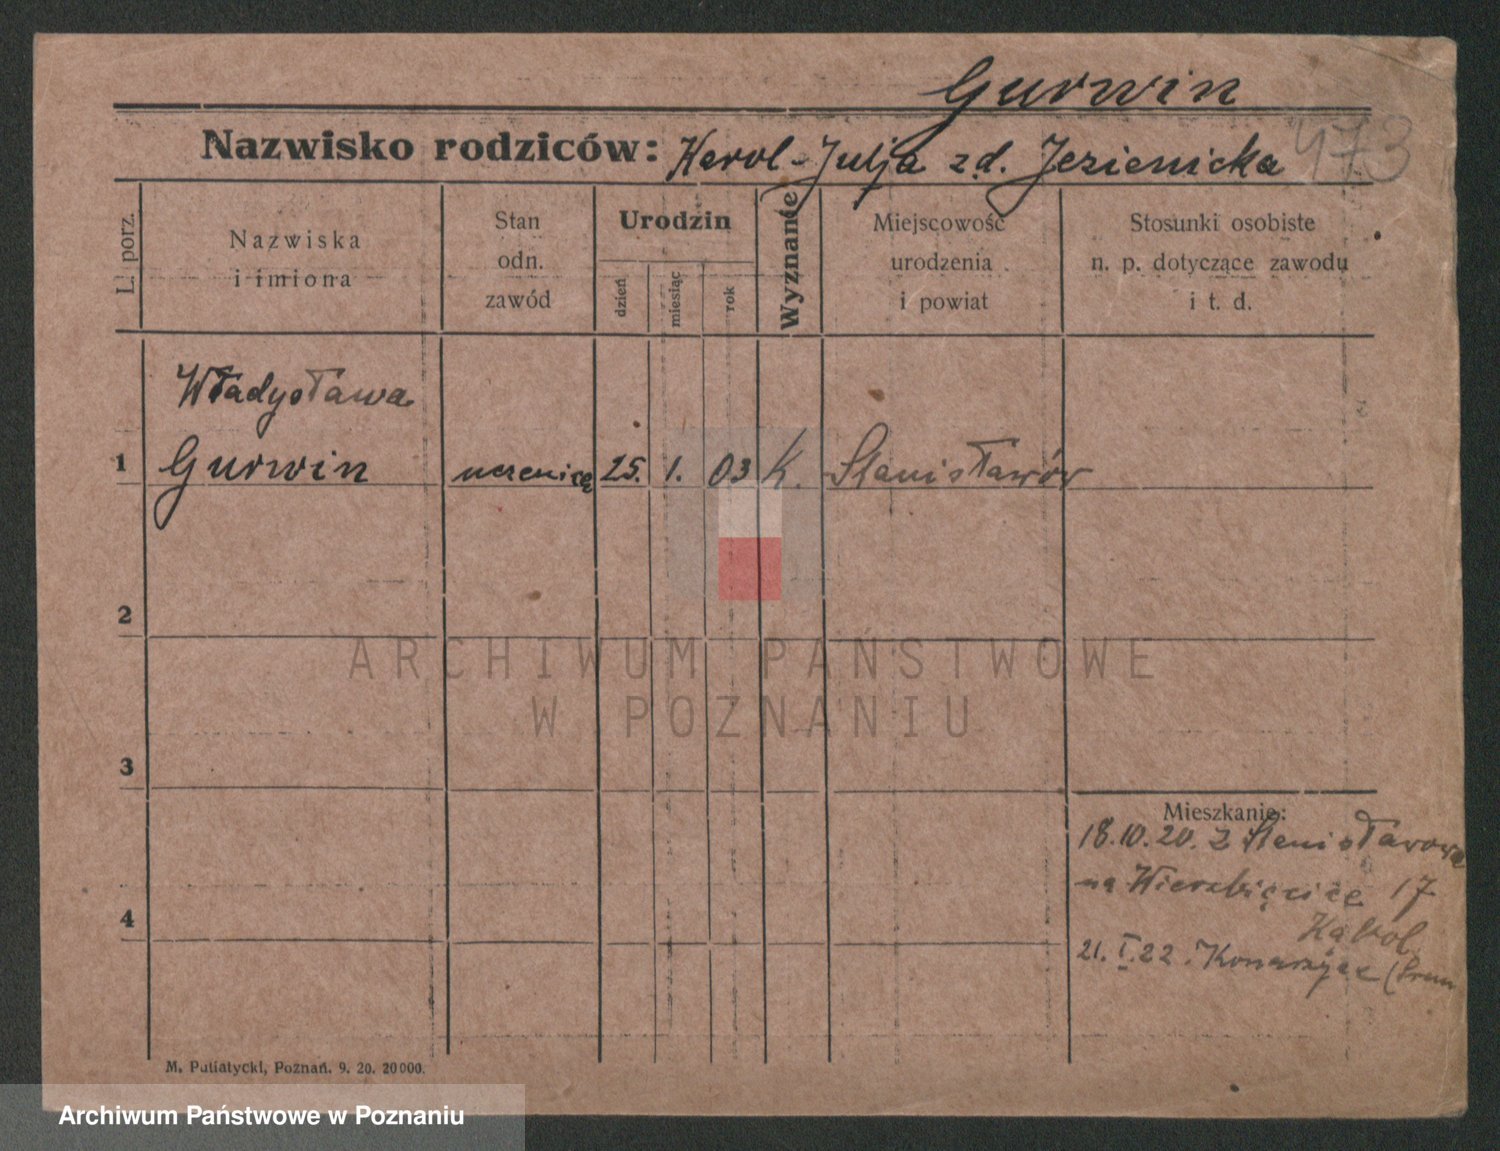 Gurwin
Nazwisko rodziców: Karol - Julja zd. Jezienicka
473
L. porz.
Nazwiska
i imiona
Stan
odn.
zawód
Urodzin
dzień
miesiąc
rok
Wyznanie
Miejscowość
urodzenia
i powiat
Stosunki osobiste
n. p. dotyczące zawodu
i t. d.
Władysława
1 Gurwin uczenica 25. 1. 03 K. Stanisławów
2
3
4
Mieszkanie:
18.10.20. z Stanisławowa
na Wierzbięcice 17
21.I.22. Konarzyce (Śrem
M. Putiatycki, Poznań. 9. 20. 20000.
ARCHIWUM PAŃSTWOWE
W POZNANIU
Archiwum Państwowe w Poznaniu